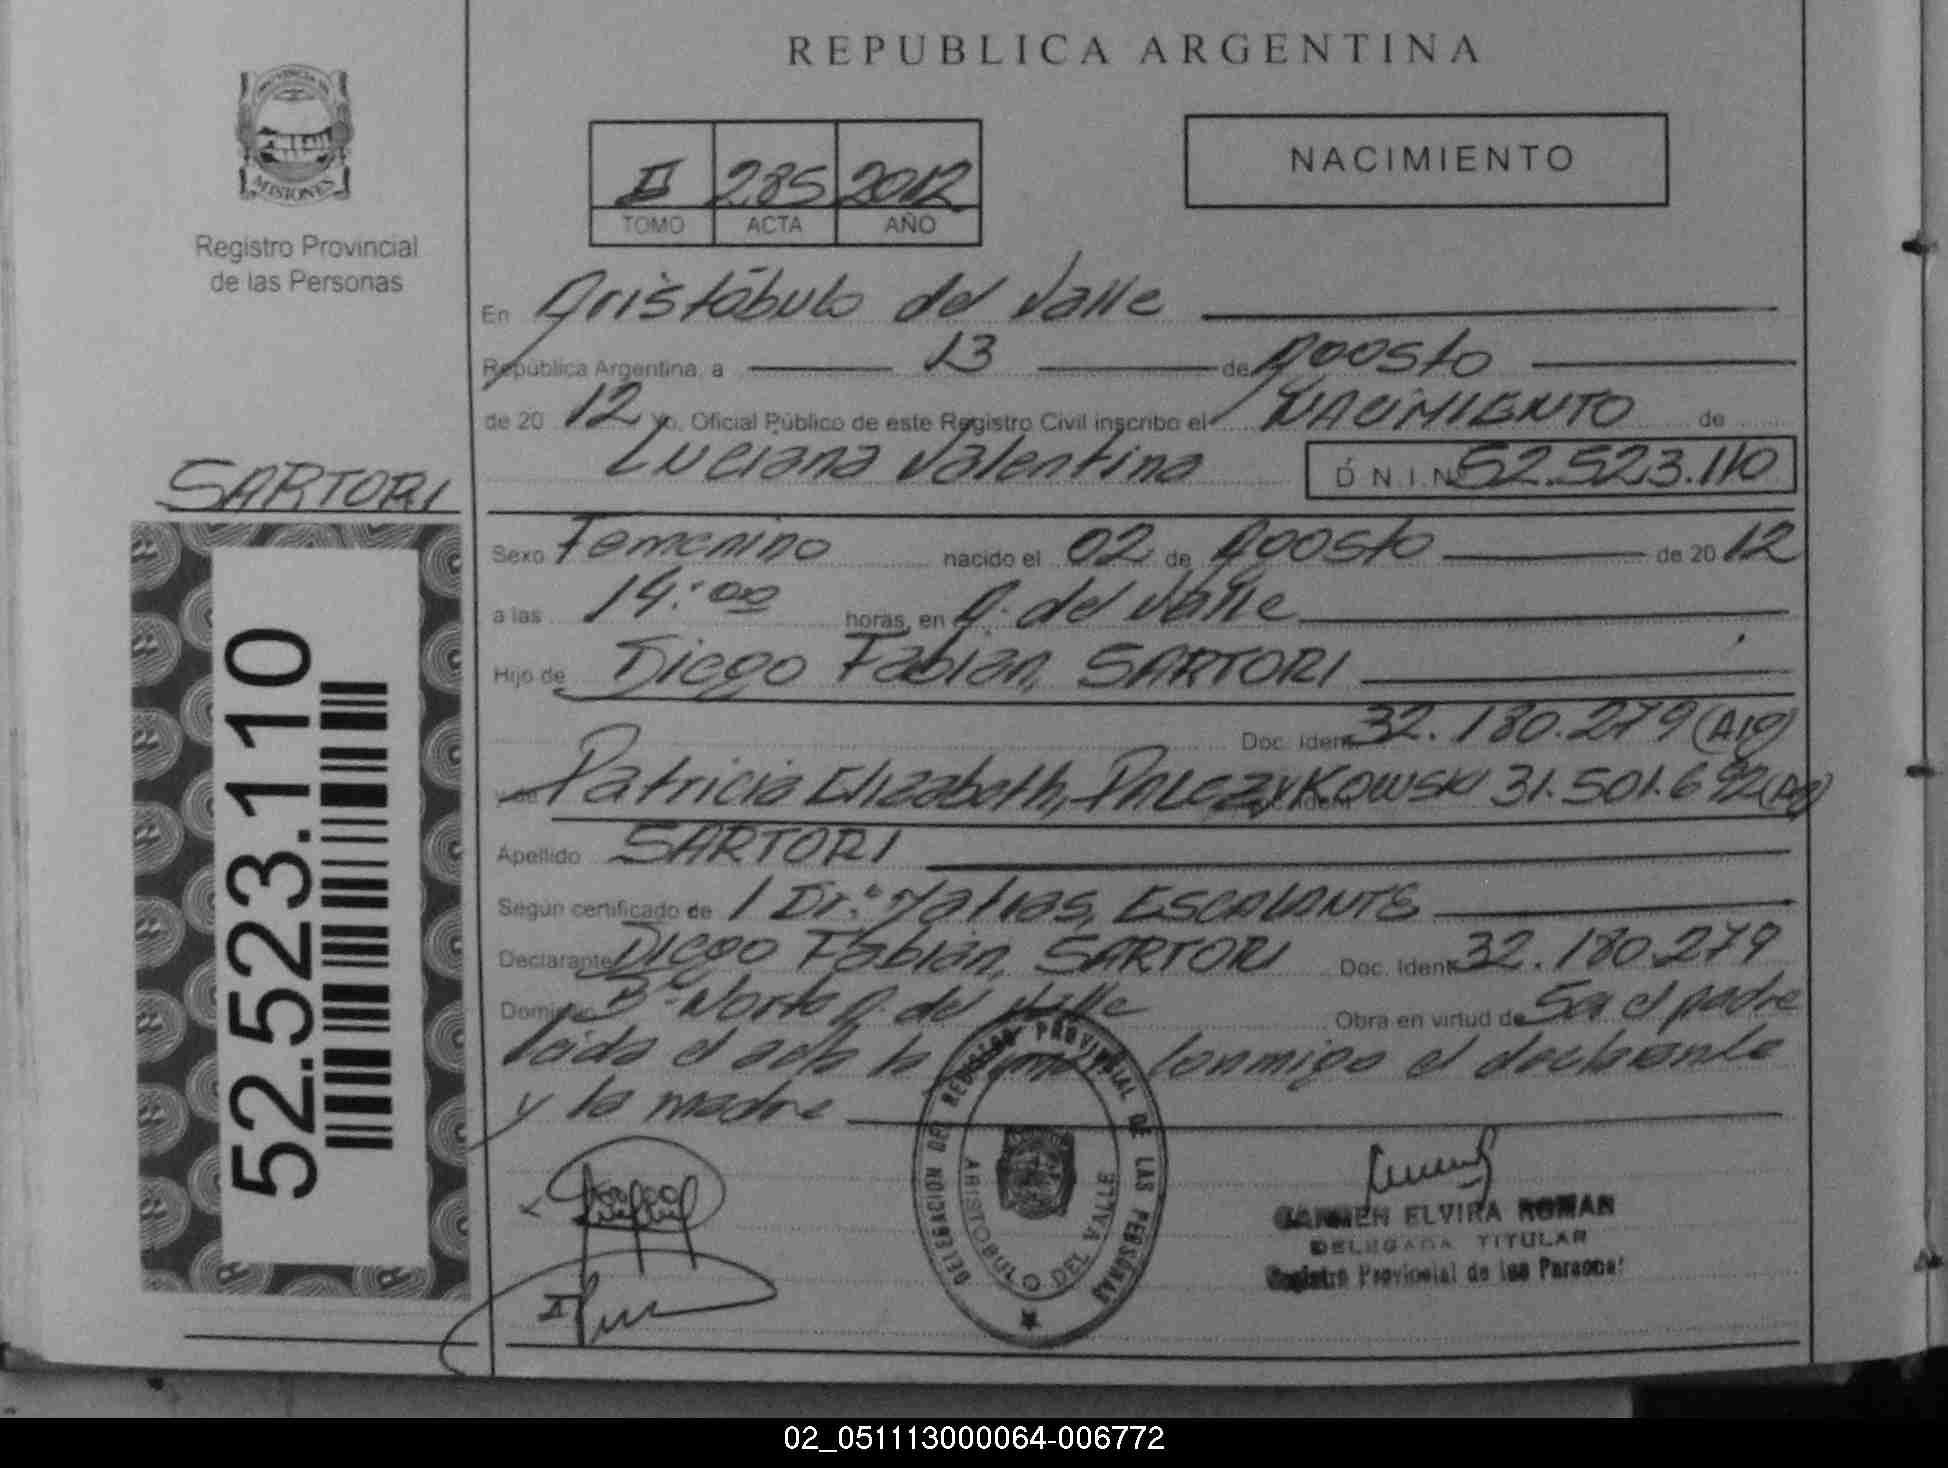 REPUBLICA ARGENTINA
PROVINCIA DE
MISIONES
Registro Provincial
de las Personas
II 285 2012
TOMO ACTA AÑO
NACIMIENTO
En Aristóbulo del Valle
República Argentina, a 13 de Agosto
de 20 12 Yo, Oficial Público de este Registro Civil inscribo el NACIMIENTO de
Luciana Valentina D N I N 52.523.110
SARTORI
52.523.110
Sexo Femenino nacido el 02 de Agosto de 20 12
a las 14:00 horas, en A. del Valle
Hijo de Diego Fabian, SARTORI
Doc. Ident. 32.180.279 (Arg)
y de Patricia Elizabeth, PALCZYKOWSKI Doc. Ident. 31.501.692 (Arg)
Apellido SARTORI
Según certificado de / Dr.ª Matias, ESCALANTE
Declarante Diego Fabian, SARTORI Doc. Ident. 32.180.279
Domicilio Bº Norte A. del Valle Obra en virtud de Ser el padre
leida el acta la firma conmigo el declarante
y la madre
DELEGACION DEL REGISTRO PROVINCIAL DE LAS PERSONAS
ARISTOBULO DEL VALLE
CARMEN ELVIRA ROMAN
DELEGADA TITULAR
Registro Provincial de las Personas
02_051113000064-006772